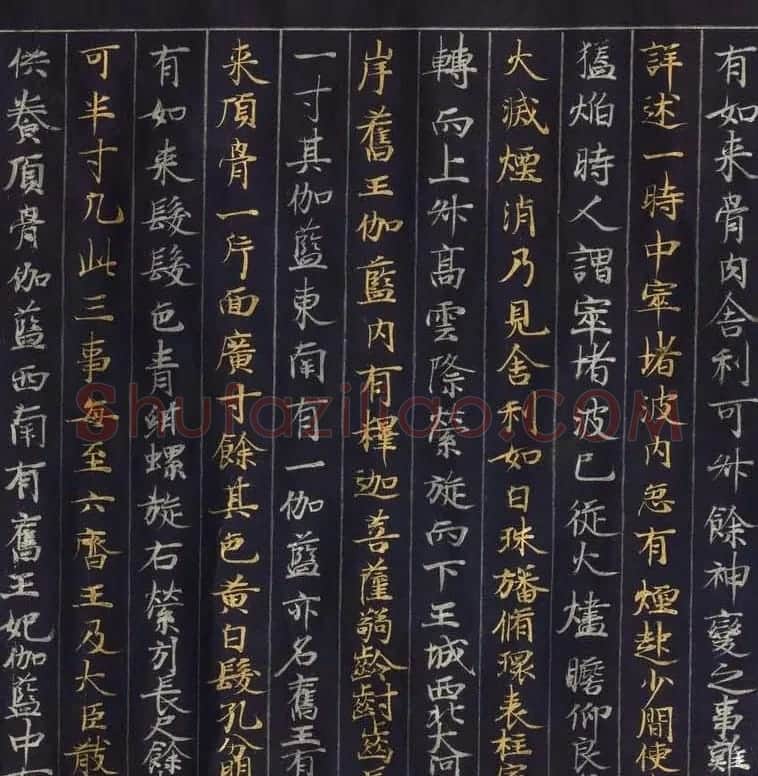 有如来骨肉舍利可升餘神變之事難
詳述一時中窣堵波內忽有煙起少間便
猛焰時人謂窣堵波已從火燼瞻仰良
火滅煙消乃見舍利如白珠旛循環表柱宛
轉而上升高雲際縈旋而下王城西北大河
岸舊王伽藍內有釋迦菩薩齠齔齒長
一寸其伽藍東南有一伽藍亦名舊王有
来頂骨一片面廣寸餘其色黃白髮孔分明
有如来髮髮色青紺螺旋右縈引長尺餘
可半寸凡此三事每至六齋王及大臣散
供養頂骨伽藍西南有舊王妃伽藍中有
Shufaziliao.COM